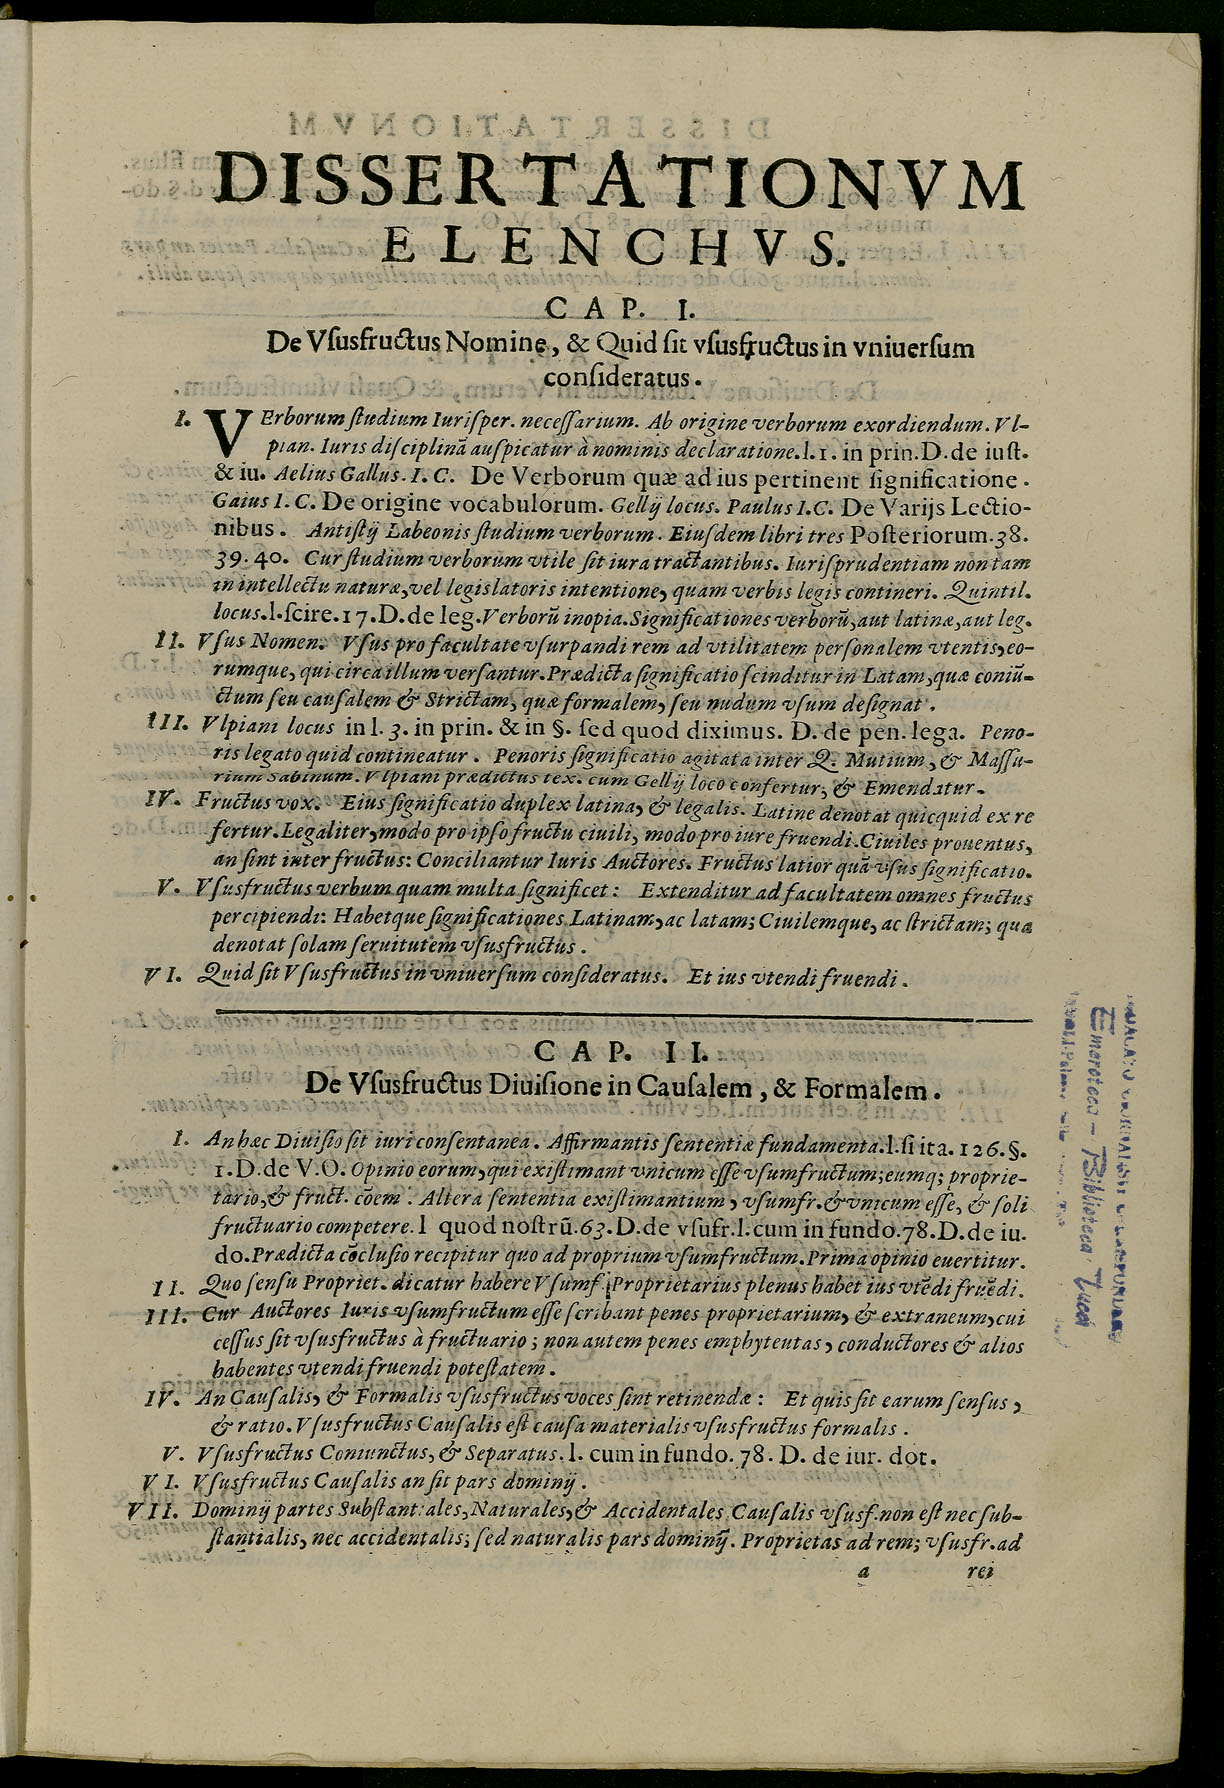 DISSERTATIONVM
ELENCHVS.
CAP. I.
De Vſusfructus Nomine, & Quid ſit vſusfructus in vniuerſum
conſideratus.
I. VErborum ſtudium Iuriſper. neceſſarium. Ab origine verborum exordiendum. Vl-
pian. Iuris diſciplinā auſpicatur à nominis declaratione. l. 1. in prin. D. de iuſt.
& iu. Aelius Gallus. I. C. De Verborum quæ ad ius pertinent ſignificatione.
Gaius I. C. De origine vocabulorum. Gellij locus. Paulus I. C. De Varijs Lectio-
nibus. Antiſtij Labeonis ſtudium verborum. Eiuſdem libri tres Poſteriorum. 38.
39. 40. Cur ſtudium verborum vtile ſit iura tractantibus. Iuriſprudentiam non tam
in intellectu naturæ, vel legislatoris intentione, quam verbis legis contineri. Quintil.
locus. l. ſcire. 17. D. de leg. Verborū inopia. Significationes verborū, aut latinæ, aut leg.
II. Vſus Nomen. Vſus pro facultate vſurpandi rem ad vtilitatem perſonalem vtentis, eo-
rumque, qui circa illum verſantur. Prædicta ſignificatio ſcinditur in Latam, quæ coniū-
ctum ſeu cauſalem & Strictam, quæ formalem, ſeu nudum vſum deſignat.
III. Vlpiani locus in l. 3. in prin. & in §. ſed quod diximus. D. de pen. lega. Peno-
ris legato quid contineatur. Penoris ſignificatio agitata inter Q. Mutium, & Maſſu-
rium Sabinum. Vlpiani prædictus tex. cum Gellij loco confertur, & Emendatur.
IV. Fructus vox. Eius ſignificatio duplex latina, & legalis. Latine denotat quicquid ex re
fertur. Legaliter, modo pro ipſo fructu ciuili, modo pro iure fruendi. Ciuiles prouentus,
an ſint inter fructus: Conciliantur Iuris Auctores. Fructus latior quā vſus ſignificatio.
V. Vſusfructus verbum quam multa ſignificet: Extenditur ad facultatem omnes fructus
percipiendi: Habetque ſignificationes Latinam, ac latam; Ciuilemque, ac ſtrictam; quæ
denotat ſolam ſeruitutem vſusfructus.
VI. Quid ſit Vſusfructus in vniuerſum conſideratus. Et ius vtendi fruendi.
CAP. II.
De Vſusfructus Diuiſione in Cauſalem, & Formalem.
I. An hæc Diuiſio ſit iuri conſentanea. Affirmantis ſententiæ fundamenta. l. ſi ita. 126. §.
1. D. de V. O. Opinio eorum, qui exiſtimant vnicum eſſe vſumfructum; eumq; proprie-
tario, & fruct. cōem. Altera ſententia exiſtimantium, vſumfr. & vnicum eſſe, & ſoli
fructuario competere. l quod noſtrū. 63. D. de vſufr. l. cum in fundo. 78. D. de iu.
do. Prædicta cōcluſio recipitur quo ad proprium vſumfructum. Prima opinio euertitur.
II. Quo ſenſu Propriet. dicatur habere Vſumf. Proprietarius plenus habet ius vtēdi fruēdi.
III. Cur Auctores Iuris vſumfructum eſſe ſcribant penes proprietarium, & extraneum, cui
ceſſus ſit vſusfructus à fructuario; non autem penes emphyteutas, conductores & alios
habentes vtendi fruendi poteſtatem.
IV. An Cauſalis, & Formalis vſusfructus voces ſint retinendæ: Et quis ſit earum ſenſus,
& ratio. Vſusfructus Cauſalis eſt cauſa materialis vſusfructus formalis.
V. Vſusfructus Coniunctus, & Separatus. l. cum in fundo. 78. D. de iur. dot.
VI. Vſusfructus Cauſalis an ſit pars dominij.
VII. Dominij partes Subſtantiales, Naturales, & Accidentales Cauſalis vſusf. non eſt nec ſub-
ſtantialis, nec accidentalis; ſed naturalis pars dominij. Proprietas ad rem; vſusfr. ad
a rei
Emeroteca - Biblioteca Tucci